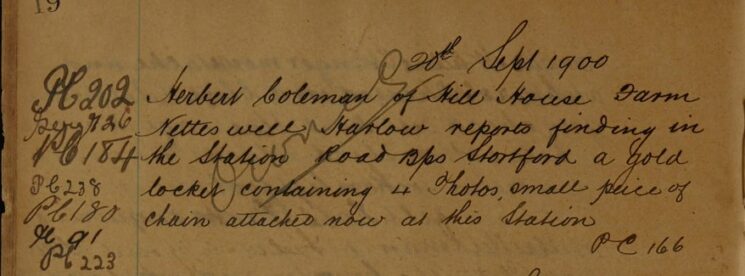 19
20th Sept 1900
PC 202 Herbert Coleman of Hill House Farm
Sergt 26 Netteswell Harlow reports finding in
PC 184 the Station Road Bps Stortford a gold
PC 238 locket containing 4 Photos, small peice of
PC 180 chain attached now at this Station
91
PC 223
PC 166